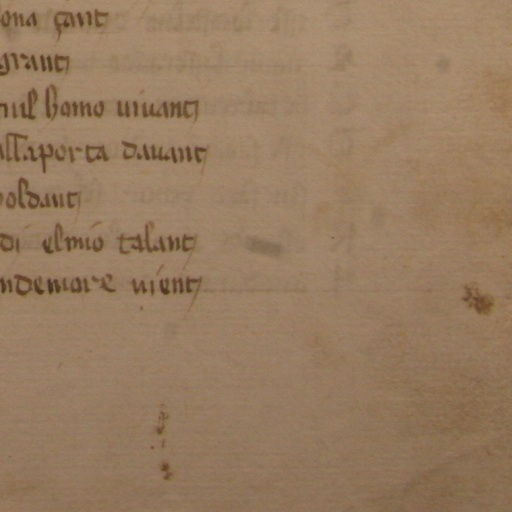 ona çant
grant
nul homo uiuant
alla porta dauant
oldant
di el mio talant
ndemore uient